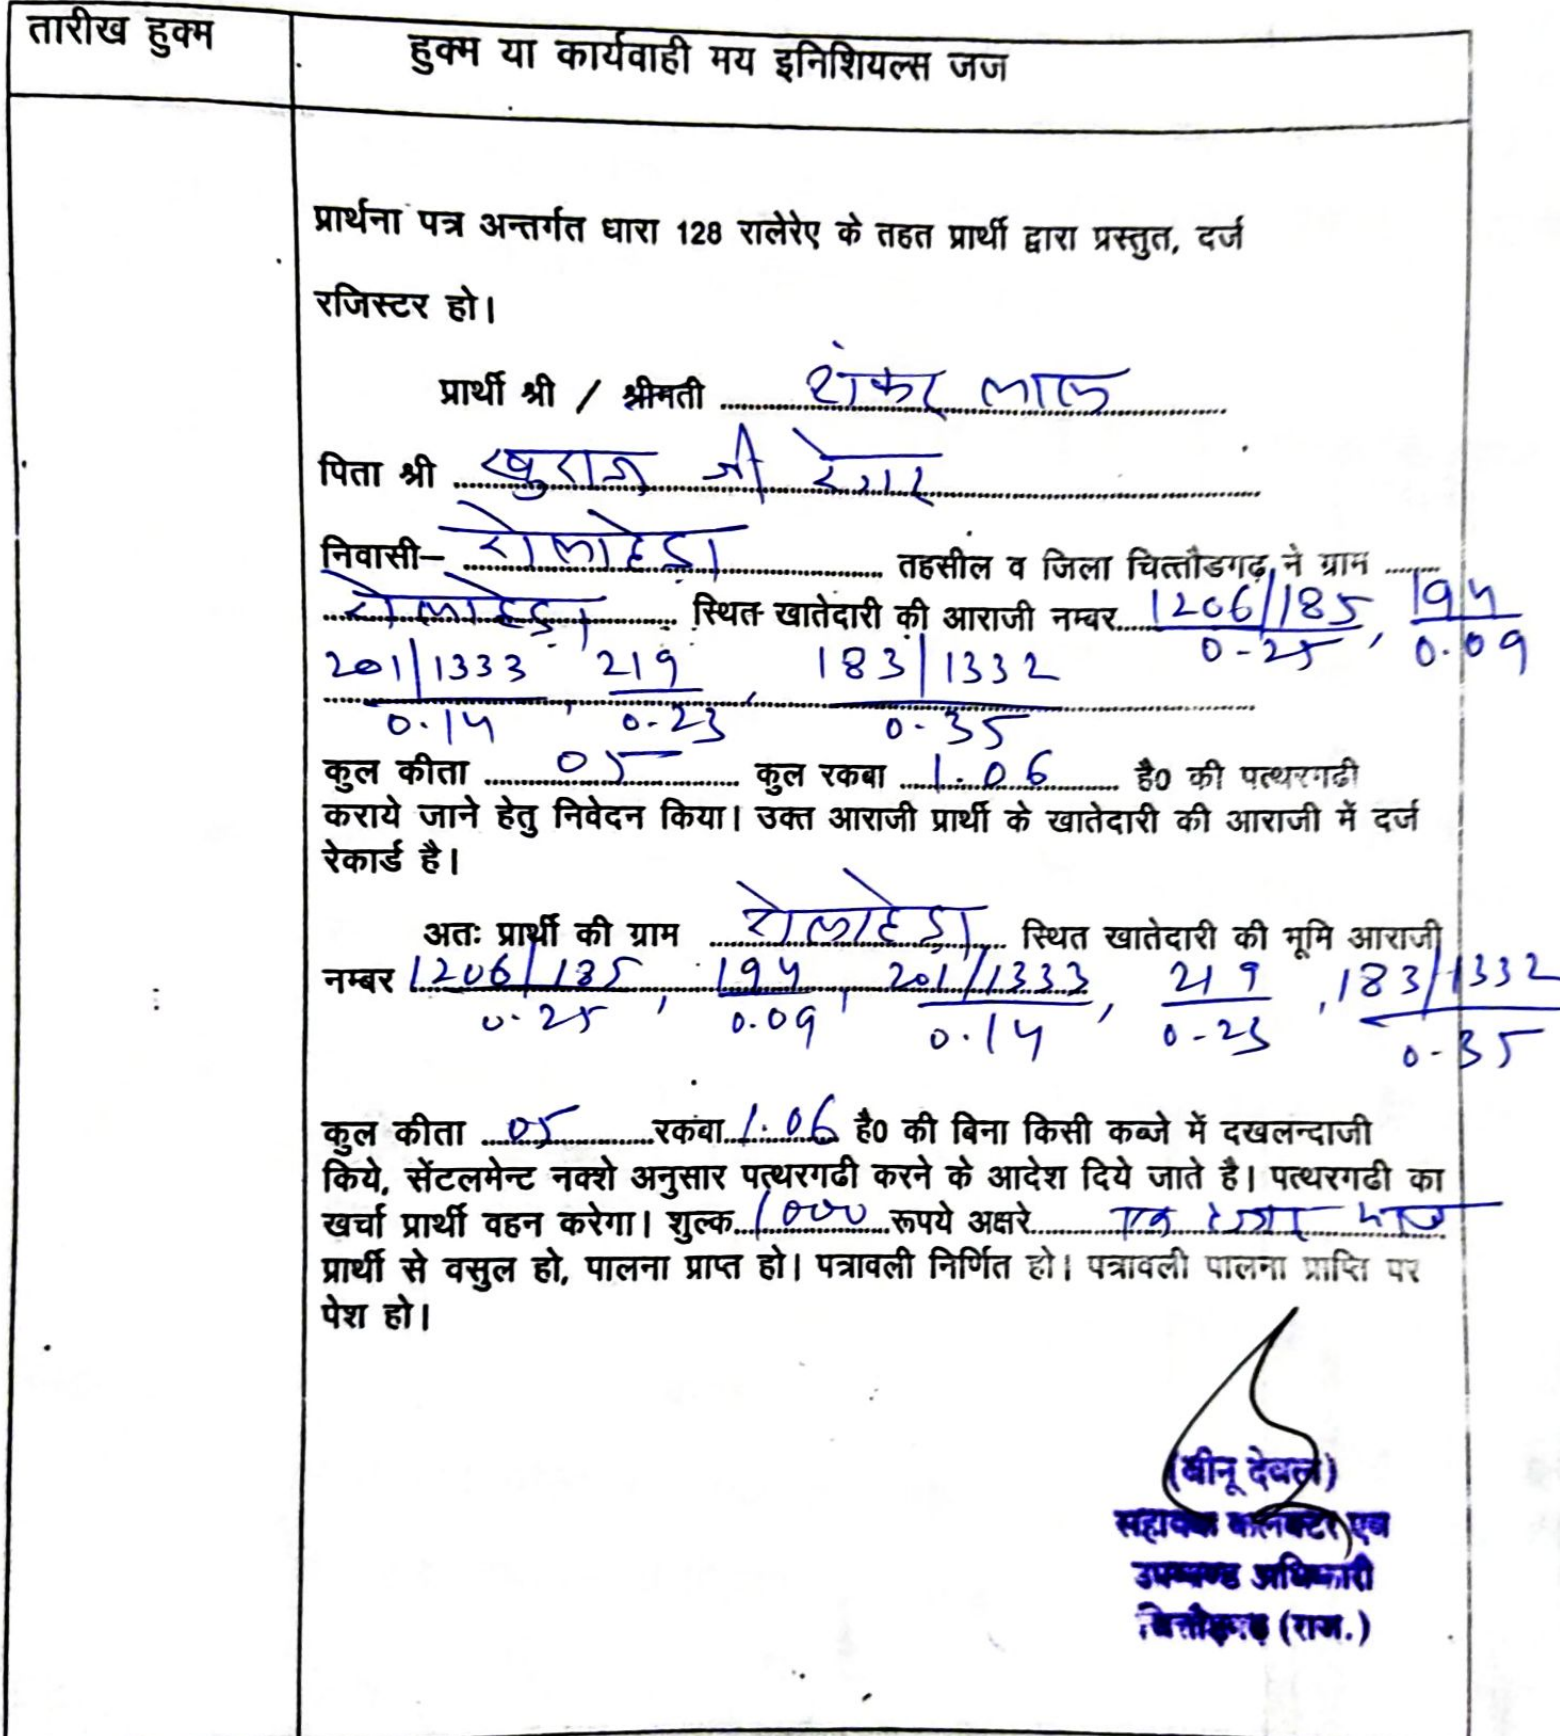 तारीख हुक्म
हुक्म या कार्यवाही मय इनिशियल्स जज
प्रार्थना पत्र अन्तर्गत धारा 128 रालेरेए के तहत प्रार्थी द्वारा प्रस्तुत, दर्ज
रजिस्टर हो।
प्रार्थी श्री / श्रीमती शंकर लाल
पिता श्री जी रेगर
निवासी– रोलाहेडा तहसील व जिला चित्तौडगढ़ ने ग्राम
रोलाहेडा स्थित खातेदारी की आराजी नम्बर 1206/185, 194
0-25 0.09
201/1333, 219, 183/1332
0.14 0-23 0-35
कुल कीता 05 कुल रकबा 1.06 है0 की पत्थरगढी
कराये जाने हेतु निवेदन किया। उक्त आराजी प्रार्थी के खातेदारी की आराजी में दर्ज
रेकार्ड है।
अतः प्रार्थी की ग्राम रोलाहेडा स्थित खातेदारी की भूमि आराजी
नम्बर 1206/185, 194, 201/1333, 219, 183/1332
0-25 0.09 0.14 0-23 0-35
कुल कीता 05 रकंबा 1.06 है0 की बिना किसी कब्जे में दखलन्दाजी
किये, सेंटलमेन्ट नक्शे अनुसार पत्थरगढी करने के आदेश दिये जाते है। पत्थरगढी का
खर्चा प्रार्थी वहन करेगा। शुल्क 1000 रूपये अक्षरे एक हजार मात्र
प्रार्थी से वसुल हो, पालना प्राप्त हो। पत्रावली निर्णित हो। पत्रावली पालना प्राप्ति पर
पेश हो।
(बीनू देवल)
सहायक कलक्टर एवं
उपखण्ड अधिकारी
चित्तौड़गढ़ (राज.)